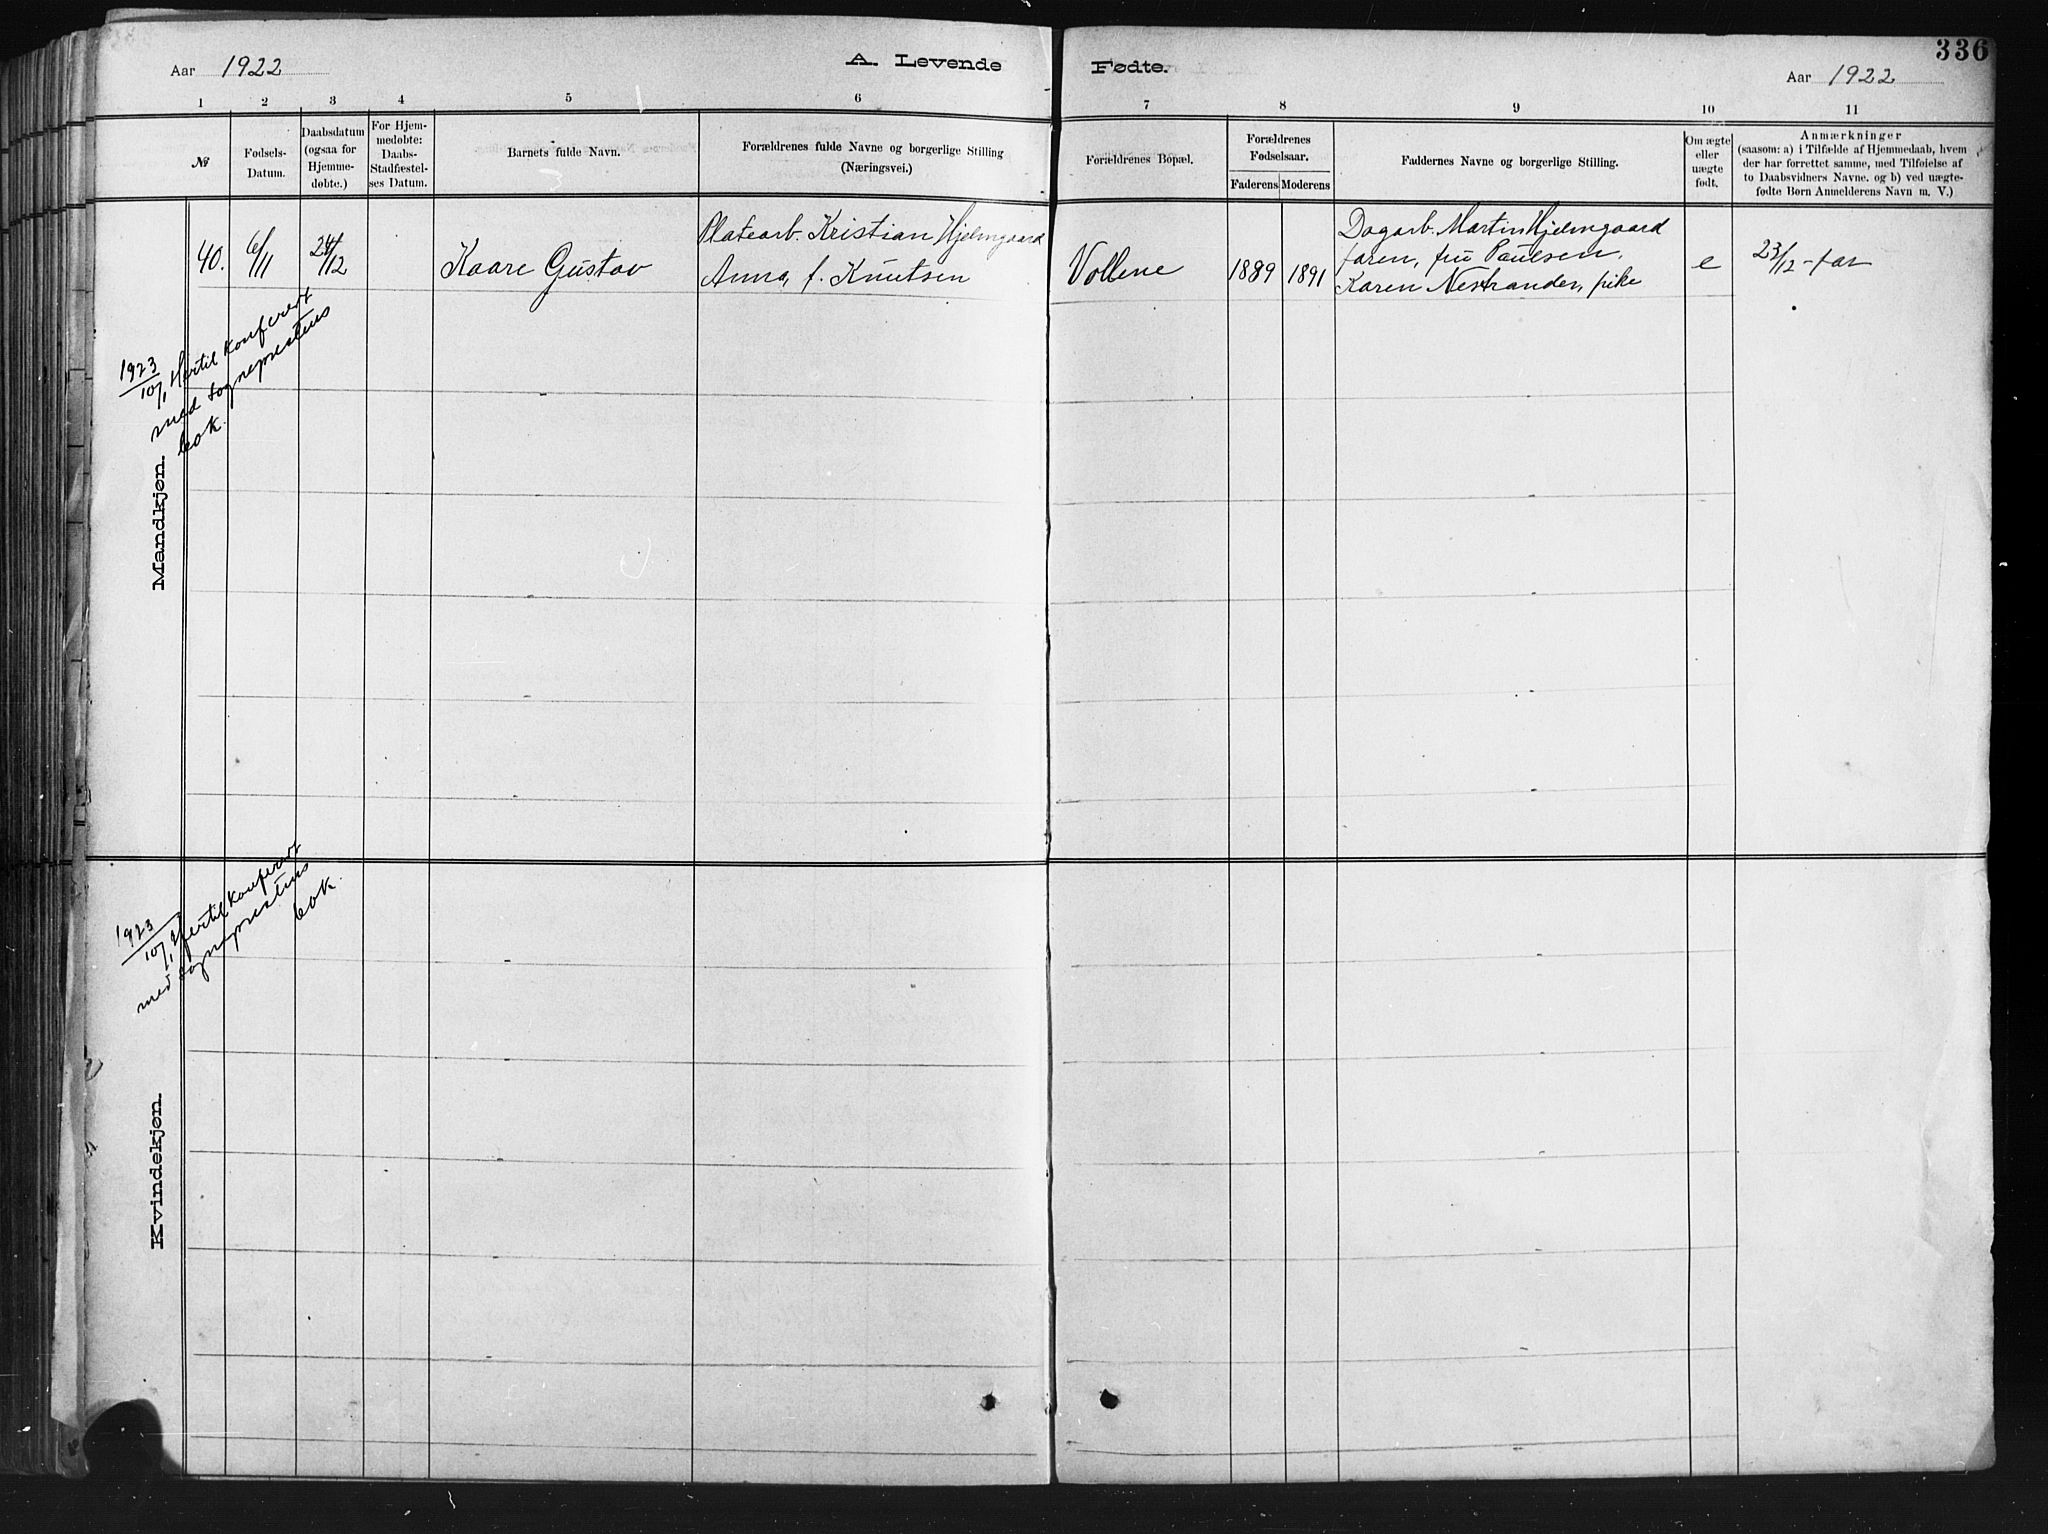 336
Aar 1922
A. Levende
Fødte.
Aar 1922
1 2 3 4 5 6 7 8 9 10 11
№
Fødsels-
Datum.
Daabsdatum
(ogsaa for
Hjemme-
døbte.)
For Hjem-
medøbte:
Daabs-
Stadfæstel-
ses Datum.
Barnets fulde Navn.
Forældrenes fulde Navne og borgerlige Stilling
(Næringsvei.)
Forældrenes Bopæl.
Forældrenes
Fødselsaar.
Faderens Moderens
Faddernes Navne og borgerlige Stilling.
Om ægte
eller
uægte
født.
Anmærkninger
(saasom: a) i Tilfælde af Hjemmedaab, hvem
der har forrettet samme, med Tilføielse af
to Daabsvidners Navne. og b) ved uægte-
fødte Børn Anmelderens Navn m. V.)
40.
6/11
24/12
Kaare Gustav
Platearb. Kristian Hjelmgaard
Anna, f. Knutsen
Vollene
1889
1891
Dagarb. Martin Hjelmgaard
faren, fru Paulsen,
Karen Nestrander, pike
e
23/12 - far
1923
10/1 Hertil konferert
med sogneprestens
bok.
Mandkjøn.
1923
10/1 Hertil konferert
med sogneprestens
bok.
Kvindekjøn.